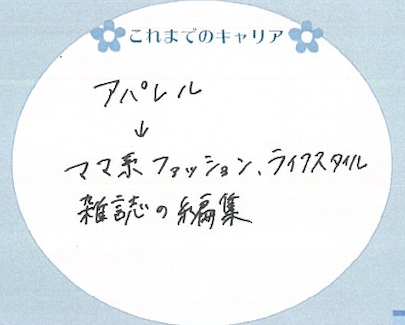 これまでのキャリア
アパレル
↓
ママ系ファッション、ライフスタイル
雑誌の編集